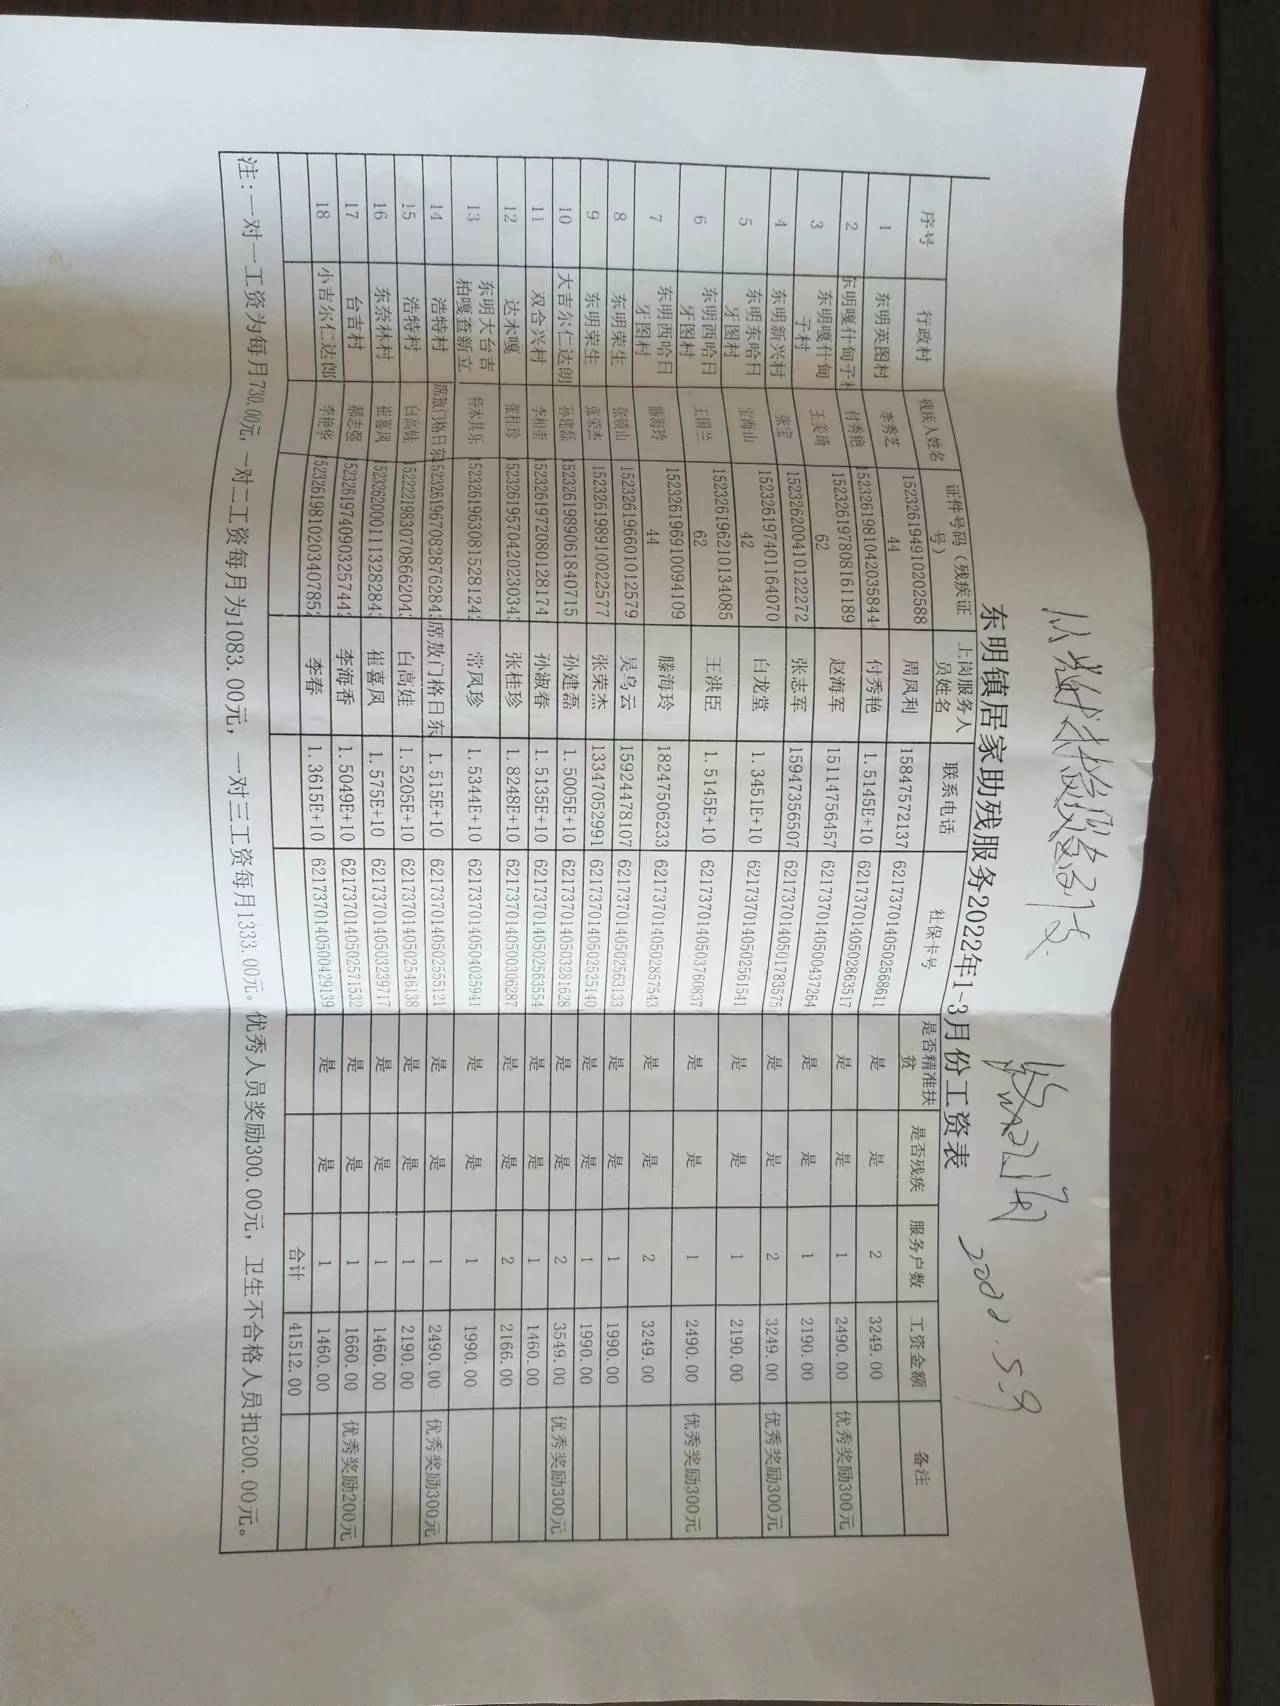 东明镇居家助残服务2022年1-3月份工资表
序号 行政村 残疾人姓名 证件号码（残疾证号） 上岗服务人员姓名 联系电话 社保卡号 是否精准扶贫 是否残疾 服务户数 工资金额 备注
1 东明英图村 李秀芝 15232619491020258844 周凤利 15847572137 6217370140502568611 是 是 2 3249.00
2 东明嘎什甸子村 付秀艳 152326198104203584 付秀艳 1.5145E+10 6217370140502863517 是 是 1 2490.00 优秀奖励300元
3 东明嘎什甸子村 王美琦 15232619780816118962 赵海军 15114756457 6217370140500437264 是 是 1 2190.00
4 东明新兴村 张宝 152326200410122272 张志军 15947356507 6217370140501783575 是 是 2 3249.00 优秀奖励300元
5 东明东哈日牙图村 宝海山 15232619740116407042 白龙堂 1.3451E+10 6217370140502561541 是 是 1 2190.00
6 东明西哈日牙图村 王国兰 15232619621013408562 王洪臣 1.5145E+10 6217370140503760837 是 是 1 2490.00 优秀奖励300元
7 东明西哈日牙图村 滕海玲 15232619691009410944 滕海玲 18247506233 6217370140502857543 是 是 2 3249.00
8 东明荣生 张颐山 1523261966010125 吴乌云 15924478107 6217370140502563133 是 是 1 1990.00
9 东明荣生 张荣杰 1523261989100225 张荣杰 13347052991 6217370140502525140 是 是 1 1990.00
10 大吉尔仁达朗 孙建磊 152326198906184071 孙建磊 1.5005E+10 6217370140503281628 是 是 2 3549.00 优秀奖励300元
11 双合兴村 李相奎 152326197208012817 孙淑春 1.5135E+10 6217370140502563554 是 是 1 1460.00
12 达木嘎 张桂珍 152326195704202303 张桂珍 1.8248E+10 6217370140500306287 是 是 2 2166.00
13 东明大台吉柏嘎查新立 特木其乐 152326196308152812 常凤珍 1.5344E+10 6217370140504025941 是 是 1 1990.00
14 浩特村 席敖门格日东 152326196708287628 席敖门格日东 1.515E+10 6217370140502555121 是 是 1 2490.00 优秀奖励300元
15 浩特村 白高娃 152222198307086620 白高娃 1.5205E+10 6217370140502546138 是 是 1 2190.00
16 东奈林村 崔喜凤 崔喜凤 1.575E+10 6217370140503239717 是 是 1 1460.00
17 台吉村 郝志强 152326197409032574 李海香 1.5049E+10 6217370140502571532 是 是 1 1660.00 优秀奖励200元
18 小吉尔仁达郎 李艳华 152326198102034078 李春 1.3615E+10 6217370140500429139 是 是 1 1460.00
合计 41512.00
注：一对一工资为每月730.00元，一对二工资每月为1083.00元，一对三工资每月1333.00元。优秀人员奖励300.00元，卫生不合格人员扣200.00元。